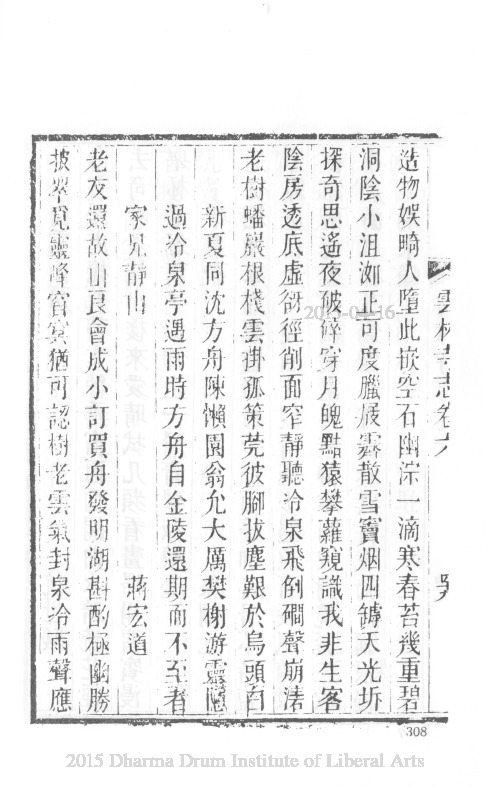 雲林寺志卷六
造物娛畸人墮此嵌空石幽淙一滴寒春苔幾重碧
洞陰小沮洳正可度臘屐霽散雪竇烟四罅天光坼
探奇思遙夜破碎穿月魄點猿攀蘿窺識我非生客
陰房透底虛徑削面窄靜聽冷泉飛倒磵聲崩湱
老樹蟠巖根棧雲掛孤策莞彼腳拔塵艱於烏頭白
新夏同沈方舟陳懶園翁允大厲樊榭游靈隱
過冷泉亭遇雨時方舟自金陵還期而不至者
家兄靜山
蔣宏道
老友還故山良會成小訂買舟發明湖斟酌極幽勝
披翠覓靈峰窅窱猶可認樹老雲氣封泉冷雨聲應
308
2015-04-16
2015 Dharma Drum Institute of Liberal Arts